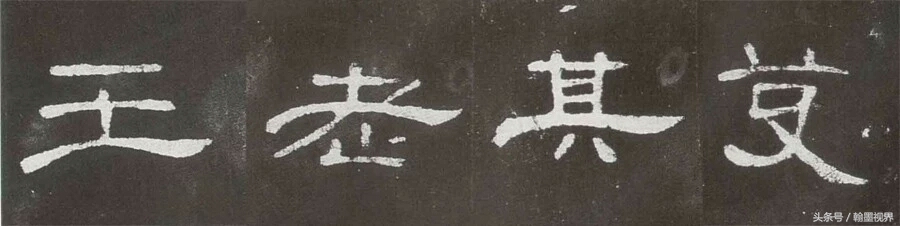 王老其芟
头条号 / 翰墨视界